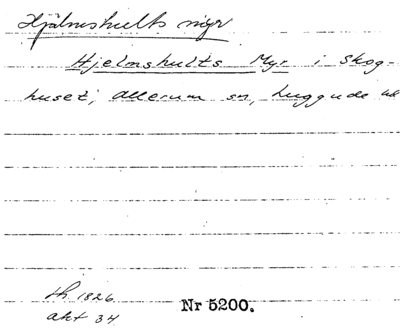 Hjälmshults myr
Hjelmshults Myr i Skog-
huset, Allerum sn, Luggude hd
lh. 1826
akt 34
Nr 5200.